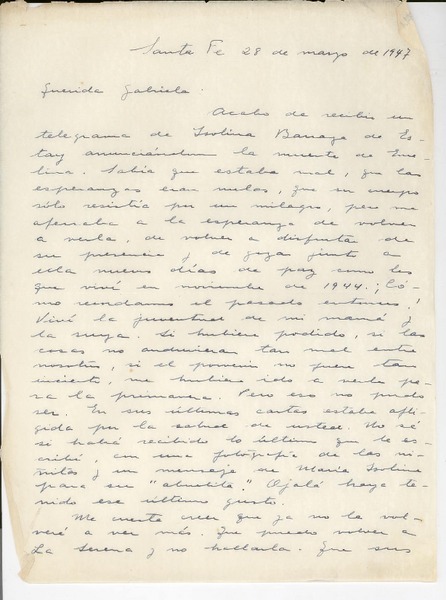 Santa Fe 28 de marzo de 1947
Querida Gabriela.
Acabo de recibir un
telegrama de Isolina Barraza de Es-
tay anunciándome la muerte de Eme-
lina. Sabía que estaba mal, que las
esperanzas eran nulas, que su cuerpo
sólo resistía por un milagro, pero me
aferraba a la esperanza de volver
a verla, de volver a disfrutar de
su presencia y de gozar junto a
ella nuevos días de paz como los
que viví en noviembre de 1944. ¡Có-
mo recordamos el pasado entonces!
Viví la juventud de mi mamá y
la suya. Si hubiere podido, si las
cosas no anduvieran tan mal entre
nosotros, si el porvenir no fuere tan
incierto, me hubiere ido a verla pa-
ra la primavera. Pero eso no pudo
ser. En sus últimas cartas estaba afli-
gida por la salud de usted. No sé
si habrá recibido lo último que le es-
cribí, con una fotografía de las ni-
ñitas y un mensaje de María Isolina
para su "abuelita." Ojalá haya te-
nido ese último gusto.
Me cuesta creer que ya no la vol-
veré a ver más. Que puedo volver a
La Serena y no hallarla. Que sus